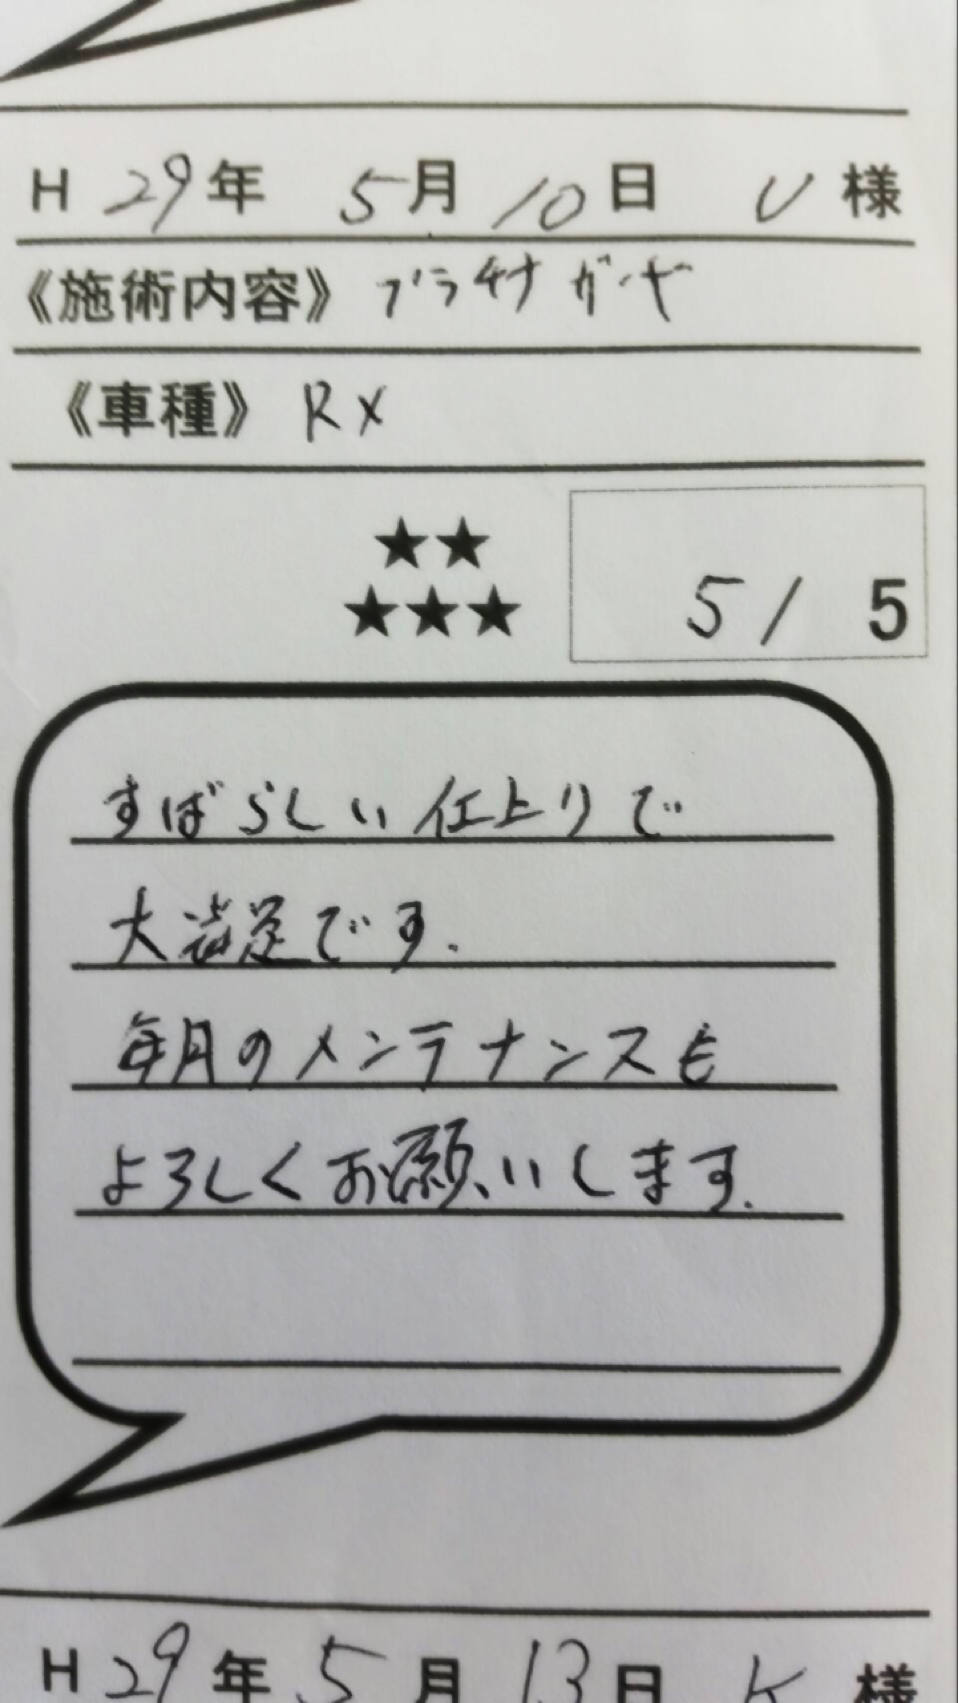 H 29年 5月10日 U様
《施術内容》プラチナガード
《車種》RX
★★
★★★
5/5
すばらしい仕上りで
大満足です.
毎月のメンテナンスも
よろしくお願いします.
H 29年 5月13日 K様